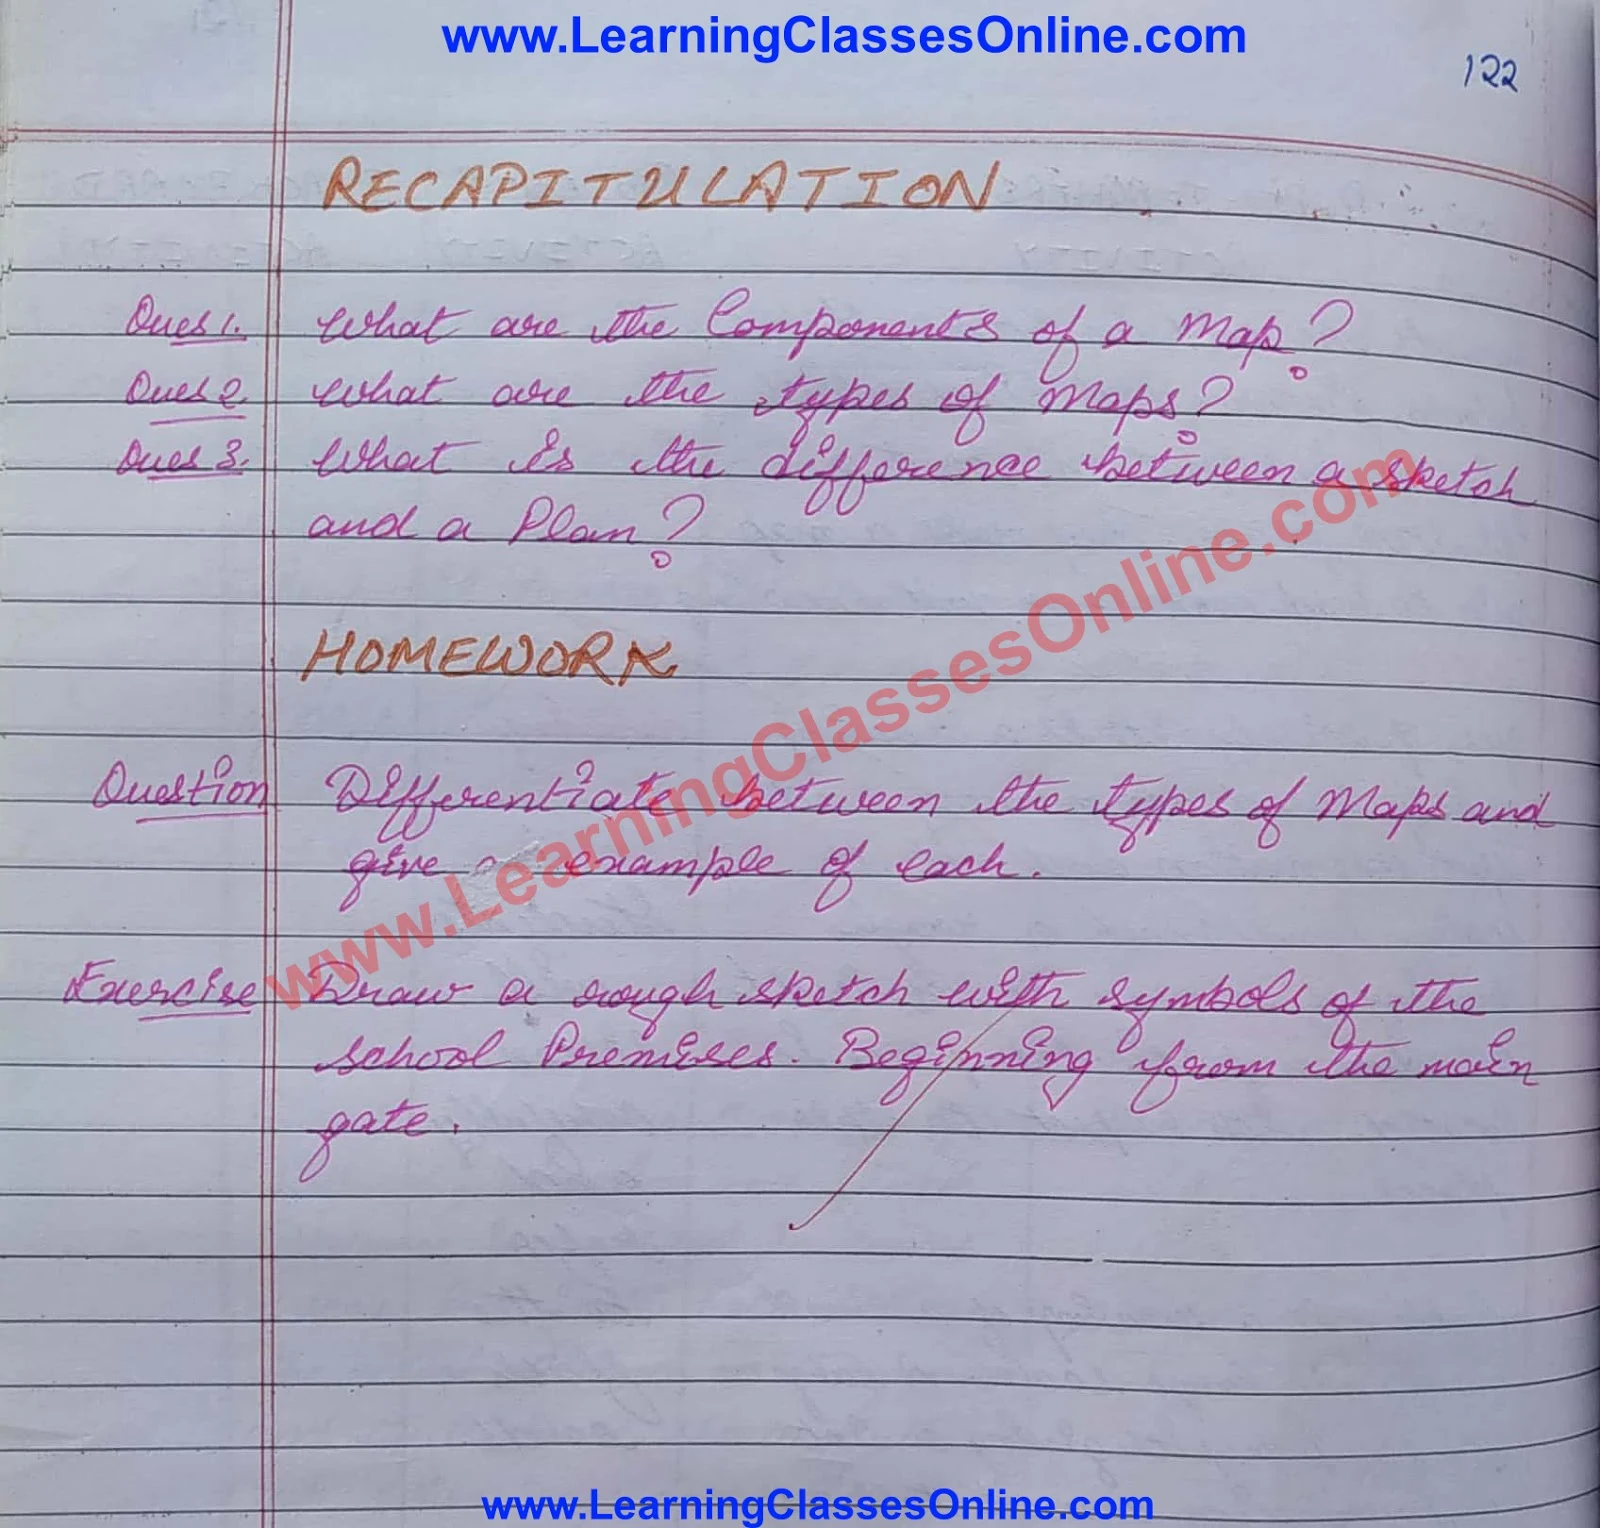 www.LearningClassesOnline.com
122
RECAPITULATION
Ques 1. What are the Components of a Map?
Ques 2. What are the types of Maps?
Ques 3. What is the difference between a sketch
and a Plan?
HOMEWORK
Question Differentiate between the types of Maps and
give example of each.
www.LearningClassesOnline.com
Exercise Draw a rough sketch with symbols of the
school Premises. Beginning from the main
gate.
www.LearningClassesOnline.com